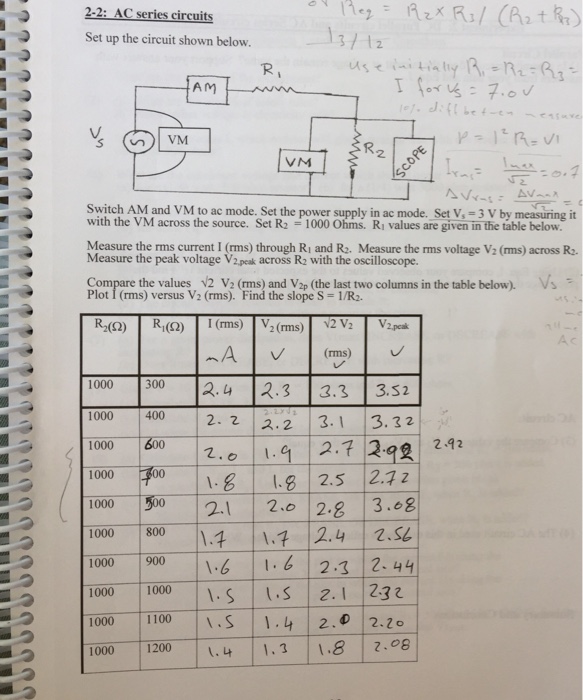 2-2: AC series circuits
Req = R2 x R3 / (R2 + R3)
Set up the circuit shown below.
13/12
use initially R1 = R2 = R3 =
I for Vs = 7.0V
10% diff between measure
P = I² R = VI
Irms = Imax/√2 = 0.7
ΔVrms = ΔVmax/√2 =
R1
AM
Vs
VM
VM
R2
SCOPE
Switch AM and VM to ac mode. Set the power supply in ac mode. Set Vs = 3 V by measuring it
with the VM across the source. Set R2 = 1000 Ohms. R1 values are given in the table below.
Measure the rms current I (rms) through R1 and R2. Measure the rms voltage V2 (rms) across R2.
Measure the peak voltage V2,peak across R2 with the oscilloscope.
Compare the values √2 V2 (rms) and V2p (the last two columns in the table below).
Vs =
Plot I (rms) versus V2 (rms). Find the slope S = 1/R2.
AC
R2(Ω) R1(Ω) I (rms) V2 (rms) √2 V2 V2,peak
mA V (rms) V V
1000 300 2.4 2.3 3.3 3.52
1000 400 2.2 2.2 3.1 3.32
1000 600 2.0 1.9 2.7 2.92 2.92
1000 700 1.8 1.8 2.5 2.72
1000 500 2.1 2.0 2.8 3.08
1000 800 1.7 1.7 2.4 2.56
1000 900 1.6 1.6 2.3 2.44
1000 1000 1.5 1.5 2.1 2.32
1000 1100 1.5 1.4 2.0 2.20
1000 1200 1.4 1.3 1.8 2.08